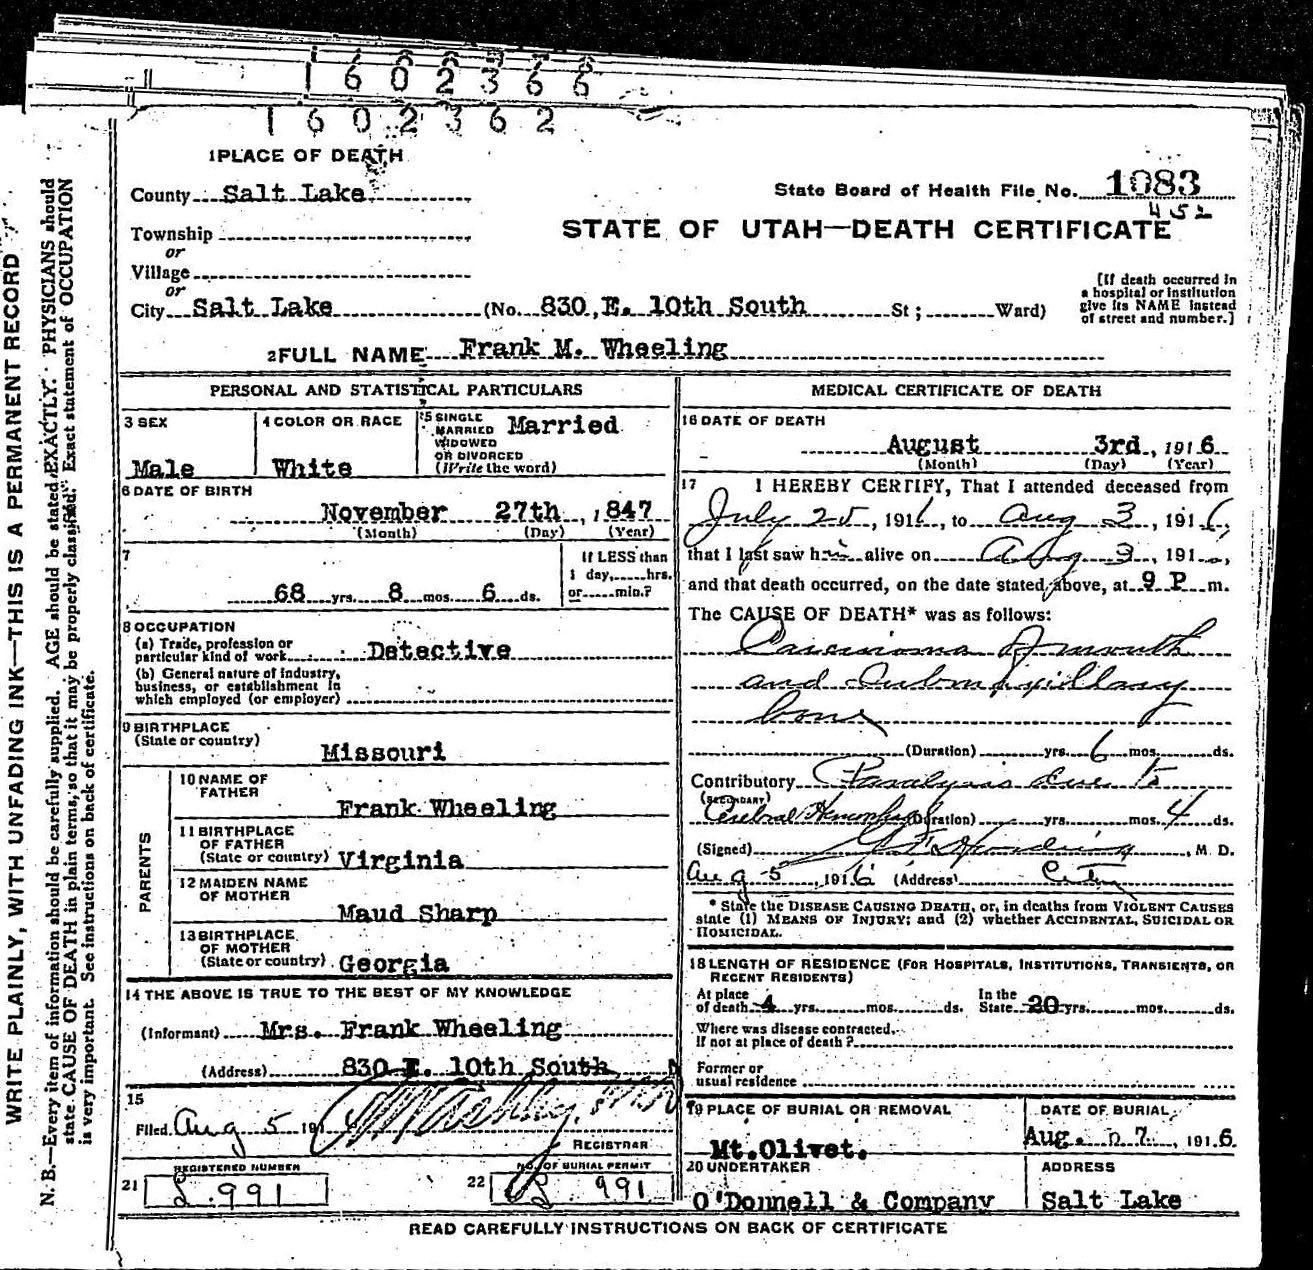 1602366
1602362
1 PLACE OF DEATH
County Salt Lake
State Board of Health File No. 1083
452
Township
or
STATE OF UTAH—DEATH CERTIFICATE
Village
or
City Salt Lake (No. 830 E. 10th South St ; Ward)
[If death occurred in
a hospital or institution
give its NAME instead
of street and number.]
2 FULL NAME Frank M. Wheeling
PERSONAL AND STATISTICAL PARTICULARS
3 SEX
Male
4 COLOR OR RACE
White
5 SINGLE
MARRIED
WIDOWED
OR DIVORCED
(Write the word)
Married
6 DATE OF BIRTH
November 27th, 1847
(Month) (Day) (Year)
7
68 yrs. 8 mos. 6 ds.
If LESS than
1 day, hrs.
or min.?
8 OCCUPATION
(a) Trade, profession or
particular kind of work Detective
(b) General nature of industry,
business, or establishment in
which employed (or employer)
9 BIRTHPLACE
(State or country)
Missouri
PARENTS
10 NAME OF
FATHER
Frank Wheeling
11 BIRTHPLACE
OF FATHER
(State or country) Virginia
12 MAIDEN NAME
OF MOTHER
Maud Sharp
13 BIRTHPLACE
OF MOTHER
(State or country) Georgia
14 THE ABOVE IS TRUE TO THE BEST OF MY KNOWLEDGE
(Informant) Mrs. Frank Wheeling
(Address) 830 E. 10th South
15
Filed Aug 5 191
REGISTRAR
21
REGISTERED NUMBER
991
22
NO. OF BURIAL PERMIT
991
MEDICAL CERTIFICATE OF DEATH
16 DATE OF DEATH
August 3rd, 1916
(Month) (Day) (Year)
17 I HEREBY CERTIFY, That I attended deceased from
July 25, 1916, to Aug 3, 1916,
that I last saw him alive on Aug 3, 191 ,
and that death occurred, on the date stated above, at 9 P m.
The CAUSE OF DEATH* was as follows:
Carcinoma of mouth
and Submaxillary
bone
(Duration) yrs. 6 mos. ds.
Contributory Paralysis due to
(SECONDARY)
Cerebral Hemorrhage (Duration) yrs. mos. 4 ds.
(Signed) , M. D.
Aug 5, 1916 (Address) City
* State the DISEASE CAUSING DEATH, or, in deaths from VIOLENT CAUSES
state (1) MEANS OF INJURY; and (2) whether ACCIDENTAL, SUICIDAL OR
HOMICIDAL.
18 LENGTH OF RESIDENCE (FOR HOSPITALS, INSTITUTIONS, TRANSIENTS, OR
RECENT RESIDENTS)
At place
of death 4 yrs. mos. ds.
In the
State 20 yrs. mos. ds.
Where was disease contracted,
If not at place of death?
Former or
usual residence
19 PLACE OF BURIAL OR REMOVAL
Mt. Olivet.
DATE OF BURIAL
Aug. 7, 1916.
20 UNDERTAKER
O'Donnell & Company
ADDRESS
Salt Lake
READ CAREFULLY INSTRUCTIONS ON BACK OF CERTIFICATE
WRITE PLAINLY, WITH UNFADING INK—THIS IS A PERMANENT RECORD
N. B.—Every item of information should be carefully supplied. AGE should be stated EXACTLY. PHYSICIANS should
state CAUSE OF DEATH in plain terms, so that it may be properly classified. Exact statement of OCCUPATION
is very important. See instructions on back of certificate.